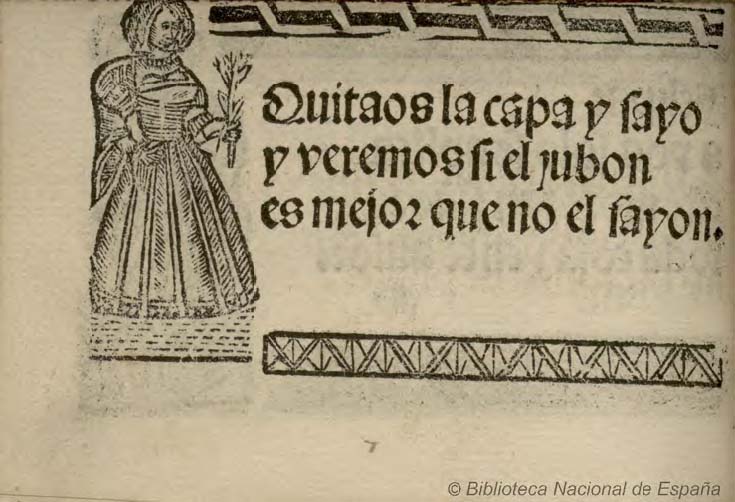 Quitaos la capa y sayo
y veremos si el jubon
es mejor que no el sayon.
7
© Biblioteca Nacional de España